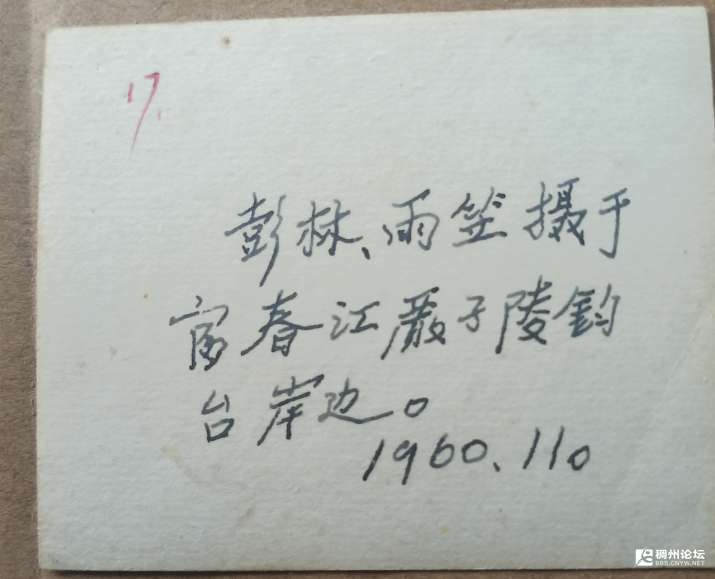 17.
彭林、雨笠摄于
富春江嚴子陵钓
台岸边。
1960.11。
稠州论坛
BBS.CNYW.NET